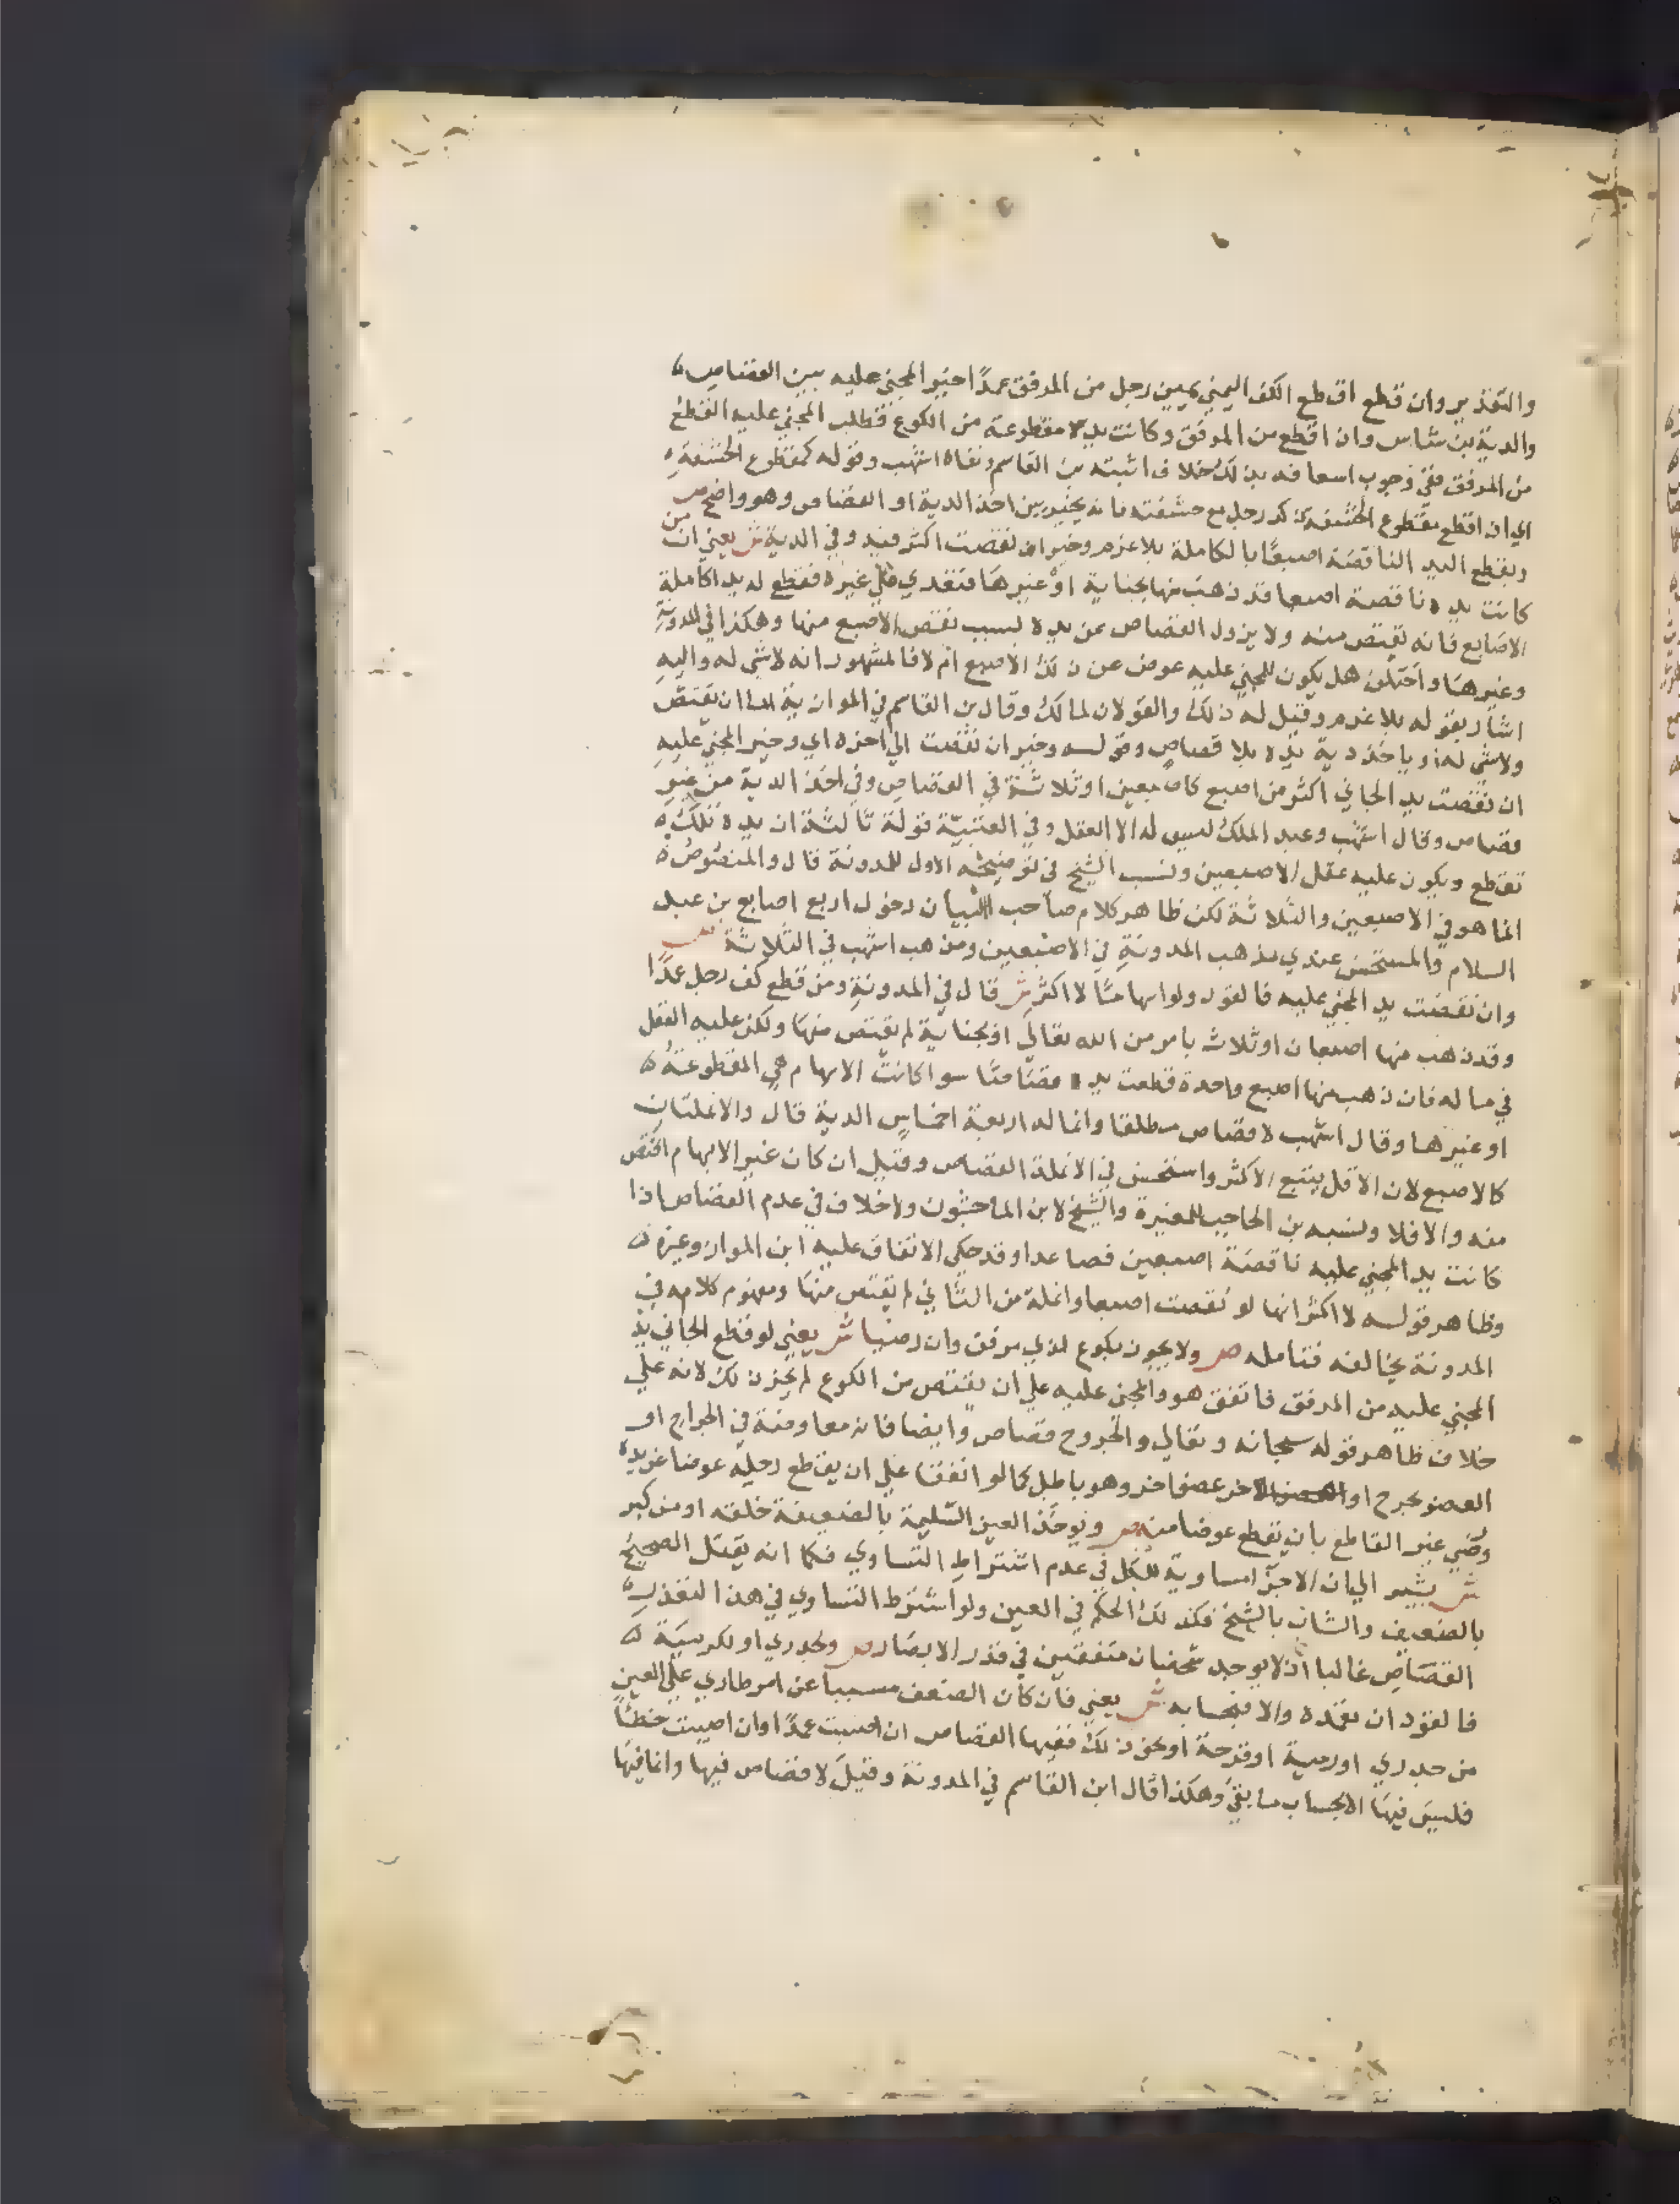 والتقدير وان قطع اقطع الكف اليمني يمين رجل من المرفق عمدًا خير المجني عليه بين القصاص
والدية بن شاس وان اقطع من المرفق وكانت يده مقطوعة من الكوع فطلب المجني عليه القطع
من المرفق ففي وجوب اسعافه بذلك خلاف اثبته بن القاسم ونفاه اشهب وقوله كمقطوع الحشفة
اي ان اقطع مقطوع الحشفة ذكر رجل مع حشفته فانه يخير بين اخذ الدية او القصاص وهو واضح ص
ويقطع اليد الناقصة اصبعًا بالكاملة بلا غرم وخير ان نقصت اكثر فيه وفي الدية ش يعني ان من
كانت يده ناقصة اصبعا قد ذهب منها بجناية او غيرها فتعدي علي غيره فقطع له يدا كاملة
الاصابع فانه يقتص منه ولا يزول القصاص عن يده لسبب نقص الاصبع منها وهكذا في المدونة
وغيرها واختلف هل يكون للمجني عليه عوض عن ذلك الاصبع ام لا فالمشهور انه لا شي له واليه
اشار بقوله بلا غرم وقيل له ذلك والقولان لمالك وقال بن القاسم في الموازية اما ان يقتص
ولا شي له او ياخذ دية يده بلا قصاص وقوله وخير ان نقصت الي اخره اي وخير المجني عليه
ان نقصت يد الجاني اكثر من اصبع كاصبعين او ثلاثة في القصاص وفي اخذ الدية من غير
قصاص وقال اشهب وعبد الملك ليس له الا العقل وفي العتبية قولة ثالثة ان يده تلك
تقطع ويكون عليه عقل الاصبعين ونسب الشيخ في توضيحه الاول للمدونة قال والمنصوص
انما هو في الاصبعين والثلاثة لكن ظاهر كلام صاحب البيان دخول اربع اصابع بن عبد
السلام والمستحسن عندي مذهب المدونة في الاصبعين ومذهب اشهب في الثلاثة ص
وان نقصت يد المجني عليه فالقود ولو ابهامًا لا اكثر ش قال في المدونة ومن قطع كف رجل عمدًا
وقد ذهب منها اصبعان او ثلاث بامر من الله تعالي او بجناية لم يقتص منها ولكن عليه العقل
في ماله فان ذهب منها اصبع واحدة قطعت يده قصاصًا سوا كانت الابهام هي المقطوعة
او غيرها وقال اشهب لا قصاص مطلقا وانما له اربعة اخماس الدية قال والانملتان
كالاصبع لان الاقل يتبع الاكثر واستحسن في الانملة القصاص وقيل ان كان غير الابهام اقتص
منه والا فلا ونسبه بن الحاجب للمغيرة والشيخ لابن الماجشون ولا خلاف في عدم القصاص اذا
كانت يد المجني عليه ناقصة اصبعين فصاعدا وقد حكي الاتفاق عليه ابن المواز وغيره
وظاهر قوله لا اكثر انها لو نقصت اصبعا وانملة من الثاني لم يقتص منها ومفهوم كلامه في
المدونة يخالفه فتامله ص ولا يجوز بكوع لذي مرفق وان رضيا ش يعني لو قطع الجاني يد
المجني عليه من المرفق فاتفق هو والمجني عليه علي ان يقتص من الكوع لم يجز ذلك لانه علي
خلاف ظاهر قوله سبحانه وتعالي والجروح قصاص وايضا فانه معاوضة في الجراح او
العضو بجرح او العضو الاخر عضوا اخر وهو باطل كما لو اتفقا علي ان يقطع رجله عوضا عن يده
رضي غير القاطع بان يقطع عوضا منه ص ويوخذ العين السليمة بالضعيفة خلقة او من كبر
ش يشير الي ان الاجزا مساوية للكل في عدم اشتراط التساوي فكما انه يقتل الصحيح
بالضعيف والشاب بالشيخ فكذلك الحكم في العين ولو اشترط التساوي في هذا لتعذر
القصاص غالبا اذ لا يوجد شخصان متفقين في قدر الابصار ص ولجدري او لكرمية
فالقود ان تعمده والا فبحسابه ش يعني فان كان الضعف مسببا عن امر طاري علي العين
من جدري او رمية او قرحة او نحو ذلك ففيها القصاص ان اصيبت عمدًا وان اصيبت خطئًا
فليس فيها الا بحساب ما بقي وهكذا قال ابن القاسم في المدونة وقيل لا قصاص فيها وانما فيها